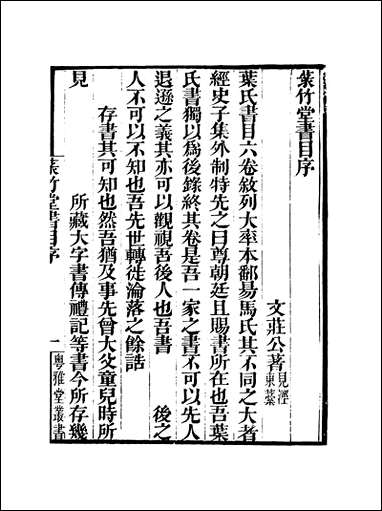 菉竹堂書目序
文莊公著見涇東藁
葉氏書目六卷敘列大率本鄱昜馬氏其不同之大者
經史子集外制特先之曰尊朝廷且賜書所在也吾葉
氏書獨以爲後錄終其卷是吾一家之書不可以先人
退遜之義其亦可以觀視吾後人也吾書　後之
人不可以不知也吾先世轉徙淪落之餘誥
存書其可知也然吾猶及事先曾大父童兒時所
見　所藏大字書傳禮記等書今所存幾
菉竹堂書目序
一
粵雅堂叢書